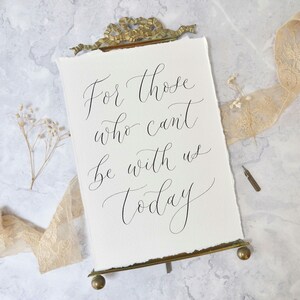 For those
who can't
be with us
today